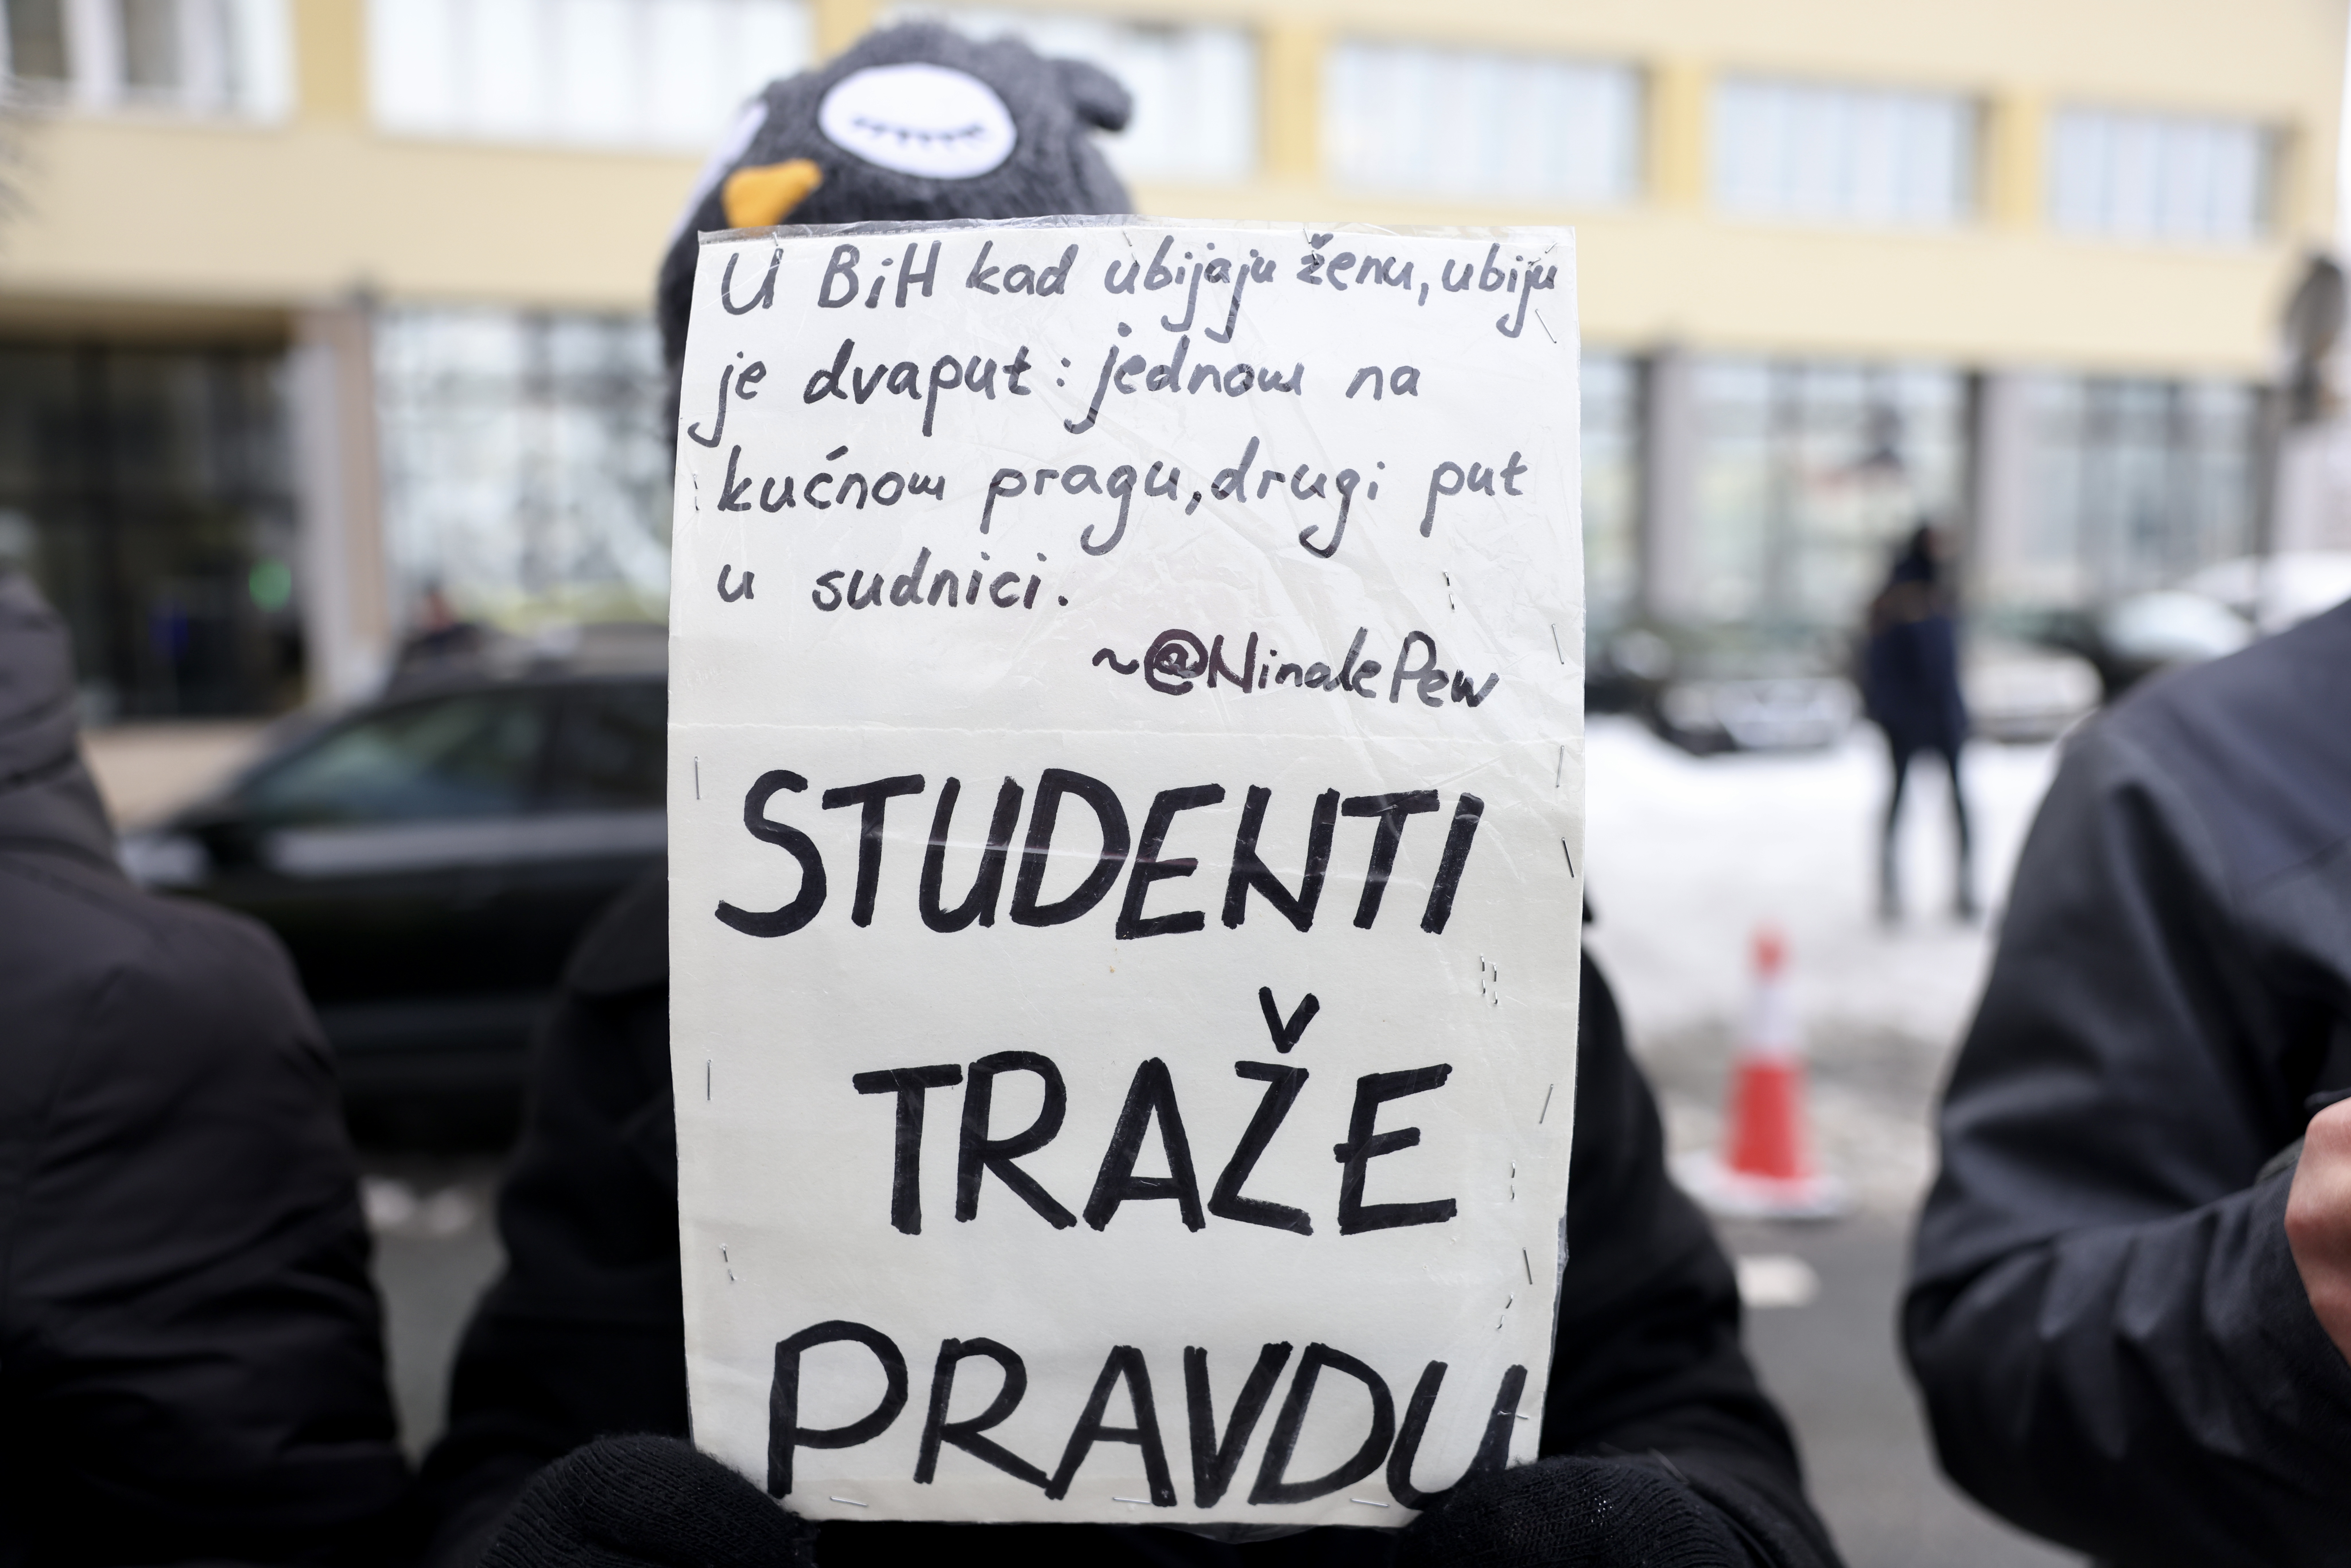 U BiH kad ubijaju ženu, ubiju
je dvaput: jednom na
kućnom pragu, drugi put
u sudnici.
~@NinalePew
STUDENTI
TRAŽE
PRAVDU